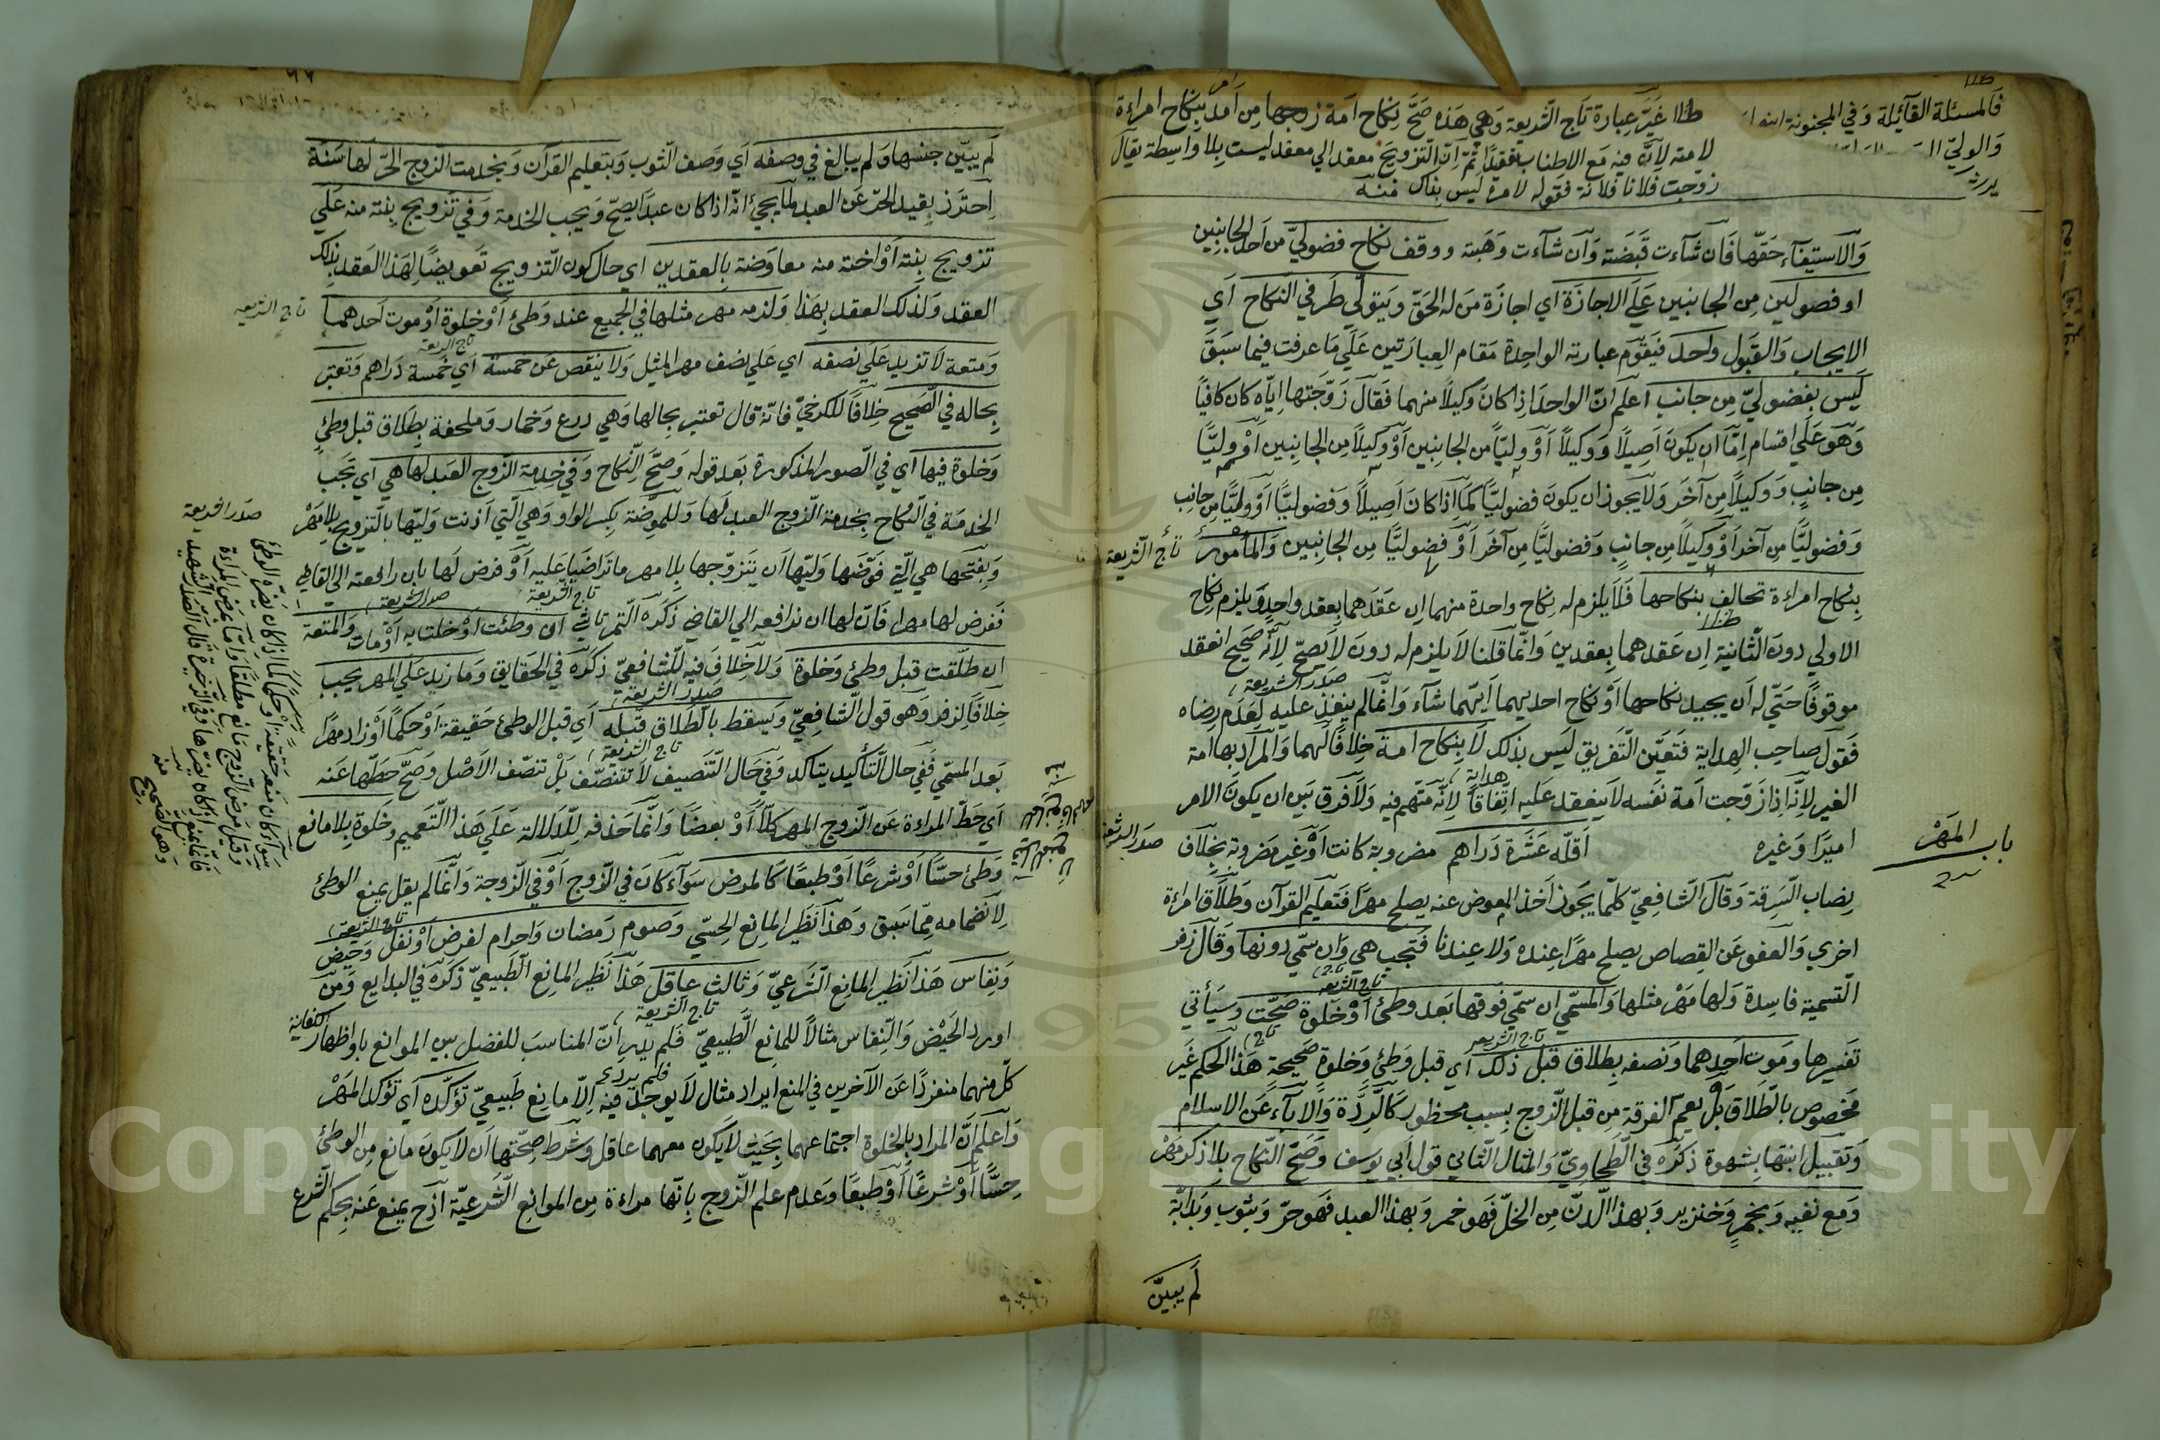 فالمسئلة القآئلة وفي المجنونة
والوليّ
طلا غيّر عبارة تاج الشريعة وهي هذه صحّ نكاح امة زوجها من امر بنكاح امراءة
لامته لانّ فيه مع الاطناب فقدا ثمّ انّ التزويج معقد الي معقد ليست بلا واسطة يقال
زوجت فلانا فلانة فقوله لامرة ليس بذاك منه
والاستيفآء حقّها فان شآءت قبضته وان شاءت وهبته ووقف نكاح فضوليّ من احد الجانبين
او فضولين من الجانبين علي الاجازة اي اجازة من له الحقّ ويتولّي طرفي النكاح اي
الايجاب والقبول واحد فيقوم عبارته الواحدة مقام العبارتين علي ما عرفت فيما سبق
ليس بفضوليّ من جانب اعلم انّ الواحد اذا كان وكيلا منهما فقال زوّجتها ايّاه كان كافيا
وهو علي اقسام امّا ان يكون اصيلا ووكيلا او وليّا من الجانبين او وكيلا من الجانبين او وليّا
من جانب ووكيلا من آخر ولا يجوز ان يكون فضوليّا كما اذا كان اصيلا وفضوليّا او وليّا من جانب
وفضوليّا من آخر او وكيلا من جانب وفضوليّا من آخر او فضوليّا من الجانبين والمامور
تاج الشريعة
بنكاح امراءة تحالف بنكاحها فلا يلزم له نكاح واحدة منهما ان عقدهما بعقد واحد ويلزم نكاح
الاولي دون الثانية ان عقدهما بعقدين وانّما قلنا لا يلزم له دون لا يصحّ لانّه صحيح انعقد
صدر الشريعة
موقوفا حتّي له ان يجيد نكاحها او نكاح احديهما ايّهما شآء وانّما لم ينفذ عليه لعدم رضاه
فقول صاحب الهداية فتعيّن التفريق ليس بذلك لا بنكاح امة خلافا لهما والمراد بها امة
هداية
الغير لانّه اذا زوّجت امة نفسه لا ينعقد عليه اتفاقا لانّه متّهم فيه ولا فرق بين ان يكون الامر
صدر الشريعة
اميرا وغيره
باب المهر
اقلّه عشرة دراهم مضروبة كانت او غير مضروبة بخلاف
نصاب السرقة وقال الشافعيّ كلّما يجوز اخذ العوض عنه يصلح مهرا فتعليم القرآن وطلاق امراءة
اخري والعفو عن القصاص يصلح مهرا عنده ولا عندنا فتجب هي وان سمّي دونها وقال زفر
تاج الشريعة
التسمية فاسدة ولها مهر مثلها والمسمّي ان سمّي فوقها بعد وطئ او خلوة صحّت وسيأتي
تاج الشريعة
تفسيرها وموت احدهما ونصفه بطلاق قبل ذلك اي قبل وطئ وخلوة صحيحة هذا الحكم غير
مخصوص بالطلاق بل يعم الفرقة من قبل الزوج بسبب محظور كالردّة والابآء عن الاسلام
وتقبيل ابنتها بشهوة ذكره في الطحاويّ والمثال الثاني قول ابي يوسف وصحّ النكاح بلا ذكر مهر
ومع نفيه وبخمر وخنزير وبهذا الدنّ من الخلّ فهو خمر وبهذا العبد فهو حرّ وبثوب وبدابّة
لم يبيّن
لم يبيّن جنسها ولم يبالغ في وصفه اي وصف الثوب وبتعليم القرآن وبخدمت الزوج الحرّ لها سنة
احترز بقيد الحرّ عن العبد لما يجيء انّه اذا كان عبدا يصحّ ويجب الخدمة وفي تزويج بنته منه علي
تزويج بنته او اخته منه معاوضة بالعقدين اي حال كون التزويج تعويضا لهذا العقد بذلك
العقد ولذلك العقد بهذا ولزمه مهر مثلها في الجميع عند وطئ او خلوة او موت احدهما
تاج الشريعة
ومتعة لا تزيد علي نصفه اي علي نصف مهر المثل ولا ينقص عن خمسة اي خمسة دراهم وتعتبر
بحاله في الصحيح خلافا للكرخيّ فانّه قال تعتبر بحالها وهي درع وخمار وملحفة بطلاق قبل وطئ
وخلوة فيها اي في الصور المذكورة بعد قوله وصحّ النكاح وفي خدمة الزوج العبد لها هي اي تجب
الخدمة في النكاح بخدمة الزوج العبد لها وللمفوّضة بكسر الواو وهي الّتي اذنت وليّها بالتزويج بلا مهر
وبفتحها هي الّتي فوّضها وليّها ان يتزوّجها بلا مهر ما تراضيا عليه او فرض لها بان رافعته الي القاضي
تاج الشريعة صدر الشريعة
ففرض لها مهرا فانّ لها ان ترافعه الي القاضي ذكره التمرتاشي ان وطئت او خلت به او مات والمتعة
ان طلّقت قبل وطئ وخلوة ولا خلاف فيه للشافعيّ ذكره في الحقايق وما زيد علي المهر يجب
صدر الشريعة
خلافا لزفر وهو قول الشافعيّ ويسقط بالطلاق قبله اي قبل الوطئ حقيقة او حكما او زاد مهرا
تاج الشريعة
بعد المسمّي ففي حال التأكيد يتاكد وفي حال التنصيف لا تتنصّف بل تنصّف الاصل وصحّ حطّها عنه
اي حطّ المراءة عن الزوج المهر كلّا او بعضا وانّما حذفه للدلالة علي هذا التعميم وخلوة بلا مانع
وطئ حسّا او شرعا او طبعا كالمرض سوآء كان في الزوج او في الزوجة وانّما لم يقل يمنع الوطئ
لانضمامه ممّا سبق وهذا نظير المانع الحسّي وصوم رمضان واحرام لفرض او نفل وحيض
تاج الشريعة
ونفاس هذا نظير المانع الشرعيّ وثالث عاقل هذا نظير المانع الطبيعيّ ذكره في البدايع ومن
تاج الشريعة
اورد الحيض والنفاس مثالا للمانع الطبيعيّ فلم يدر انّ المناسب للفصل بين الموانع باو اظهار
كلّ منهما منفردا عن الآخرين في المنع ايراد مثال لا يوجد فيه الّا مانع طبيعيّ تؤكّده اي تؤكد المهر
واعلم انّ المراد بالخلوة اجتماعهما بحيث لا يكون معهما عاقل وشرط صحّتها ان لا يكون مانع من الوطئ
حسّا او شرعا او طبعا وعدم علم الزوج بانّها مراءة من الموانع الشرعيّة اذ ح يمنع عنه بحكم الشرع
صدر الشريعة
وهو الصحيح منه
Copyright © King Saud University